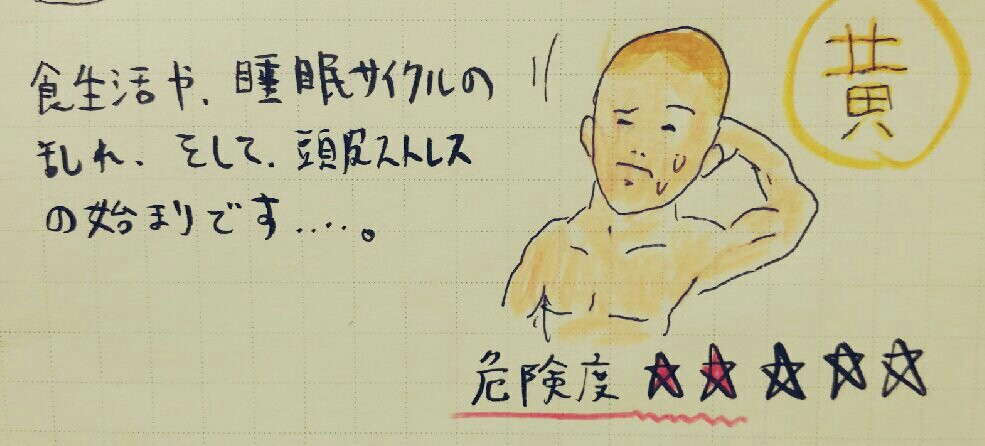 食生活や、睡眠サイクルの
乱れ、そして、頭皮ストレス
の始まりです....。
黄
危険度 ★★☆☆☆